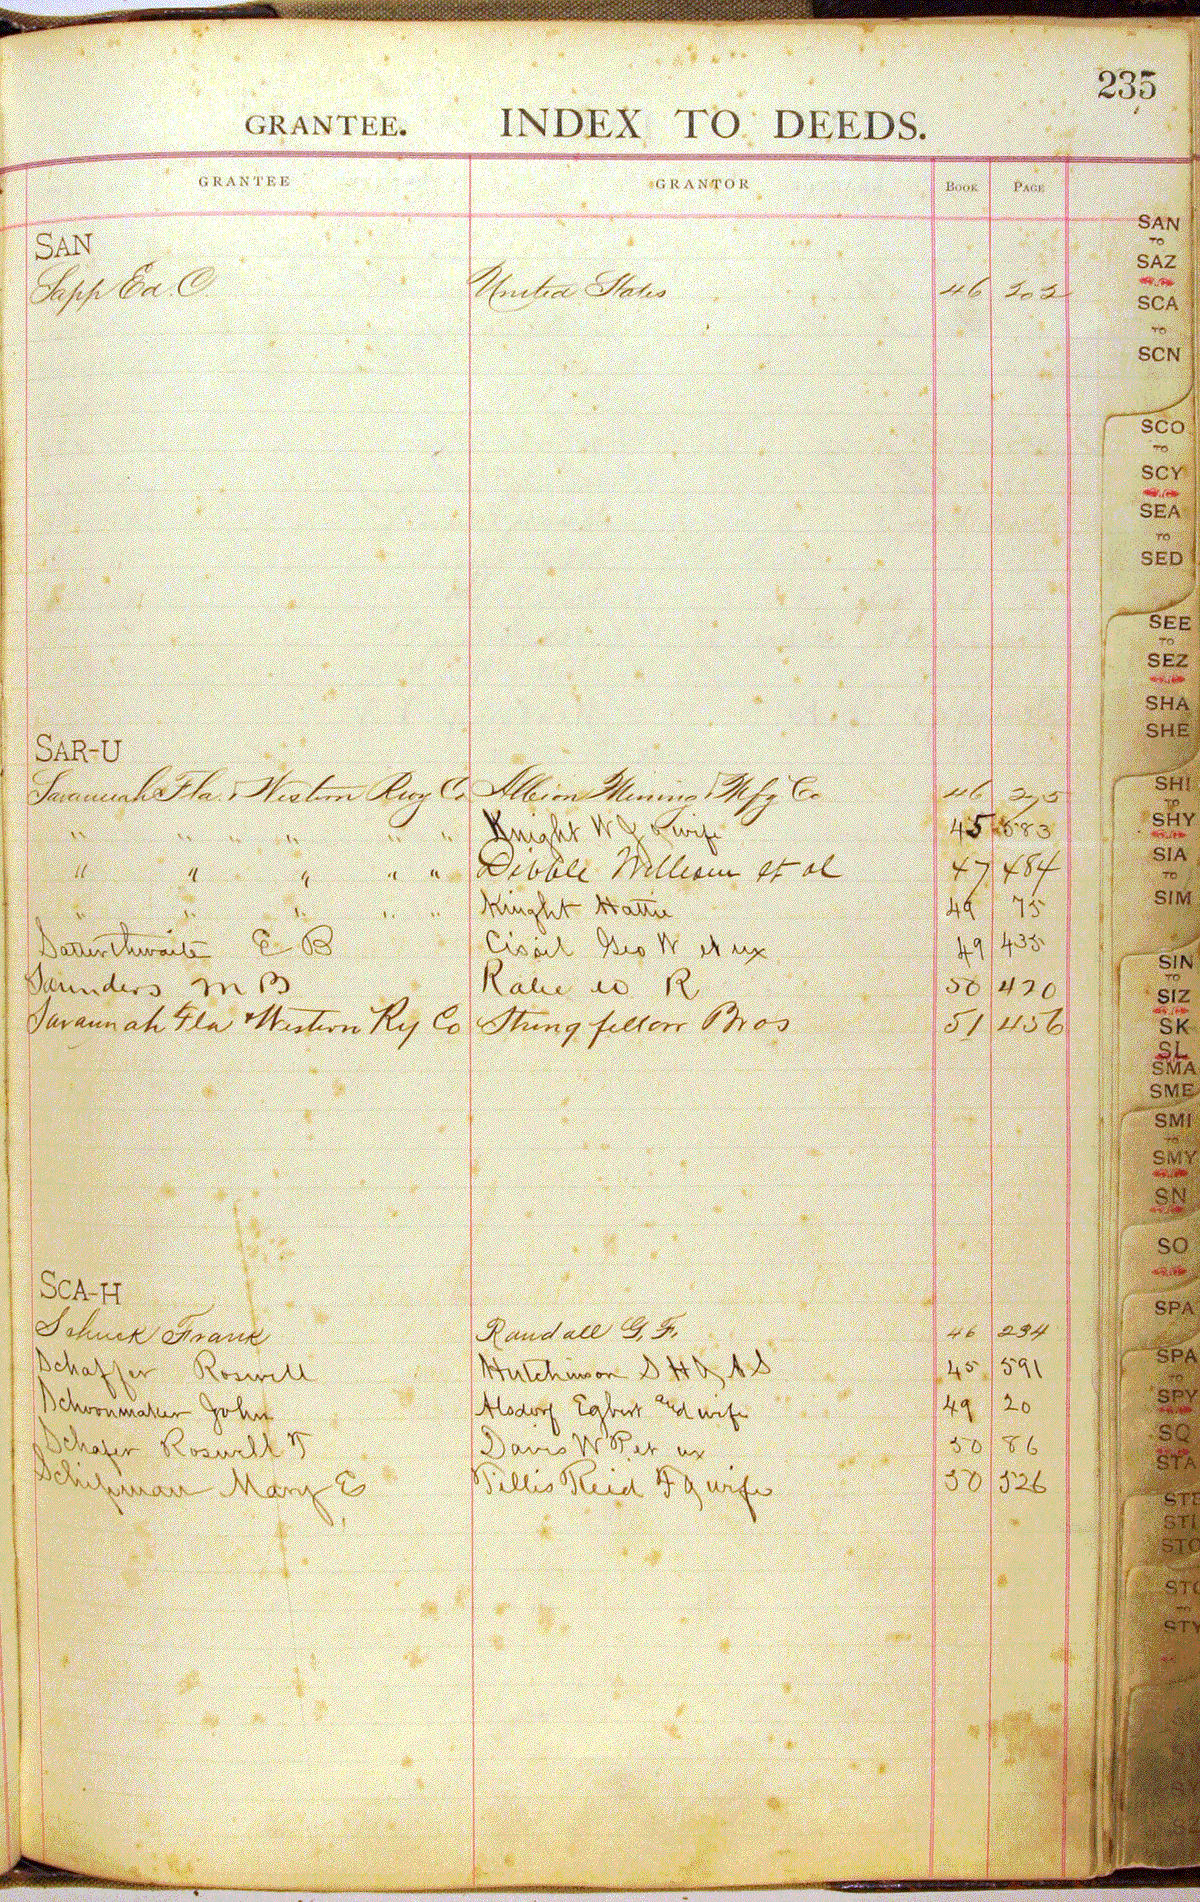 235
GRANTEE. INDEX TO DEEDS.
GRANTEE GRANTOR BOOK PAGE
SAN
Sapp Ed. C. United States 46 202
SAR-U
Savannah Fla. & Western Rwy Co Albion Mining & Mfg Co 46 275
" " " " " " Knight W J & wife 45 583
" " " " " Dibble William et al 47 484
" " " " " Knight Hattie 49 75
Satterthwaite E B Geo W et ux 49 435
Saunders M B R 50 420
Savannah Fla & Western Ry Co Stringfellow Bros 51 456
SCA-H
Schuck Frank Randall G. F. 46 234
Schaffer Roswell Hutchinson S H & A S 45 591
Schoonmaker John Alsdorf Egbert and wife 49 20
Schafer Roswell T Davis W P et ux 50 86
Schipman Mary E Tillis Reid F & wife 50 526
SAN
TO
SAZ
SCA
TO
SCN
SCO
TO
SCY
SEA
TO
SED
SEE
TO
SEZ
SHA
SHE
SHI
TO
SHY
SIA
TO
SIM
SIN
TO
SIZ
SK
SL
SMA
SME
SMI
TO
SMY
SN
SO
SPA
SPA
TO
SPY
SQ
STA
STE
STI
STO
STO
TO
STY